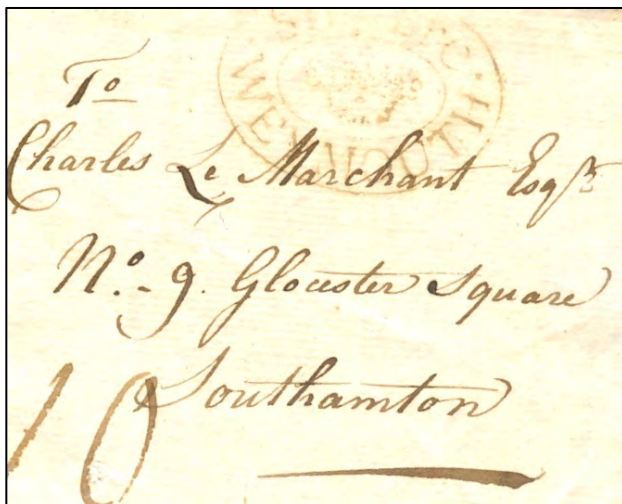 WEYMOUTH
To
Charles Le Marchant Esqr
No. 9. Glocester Square
Southamton
10